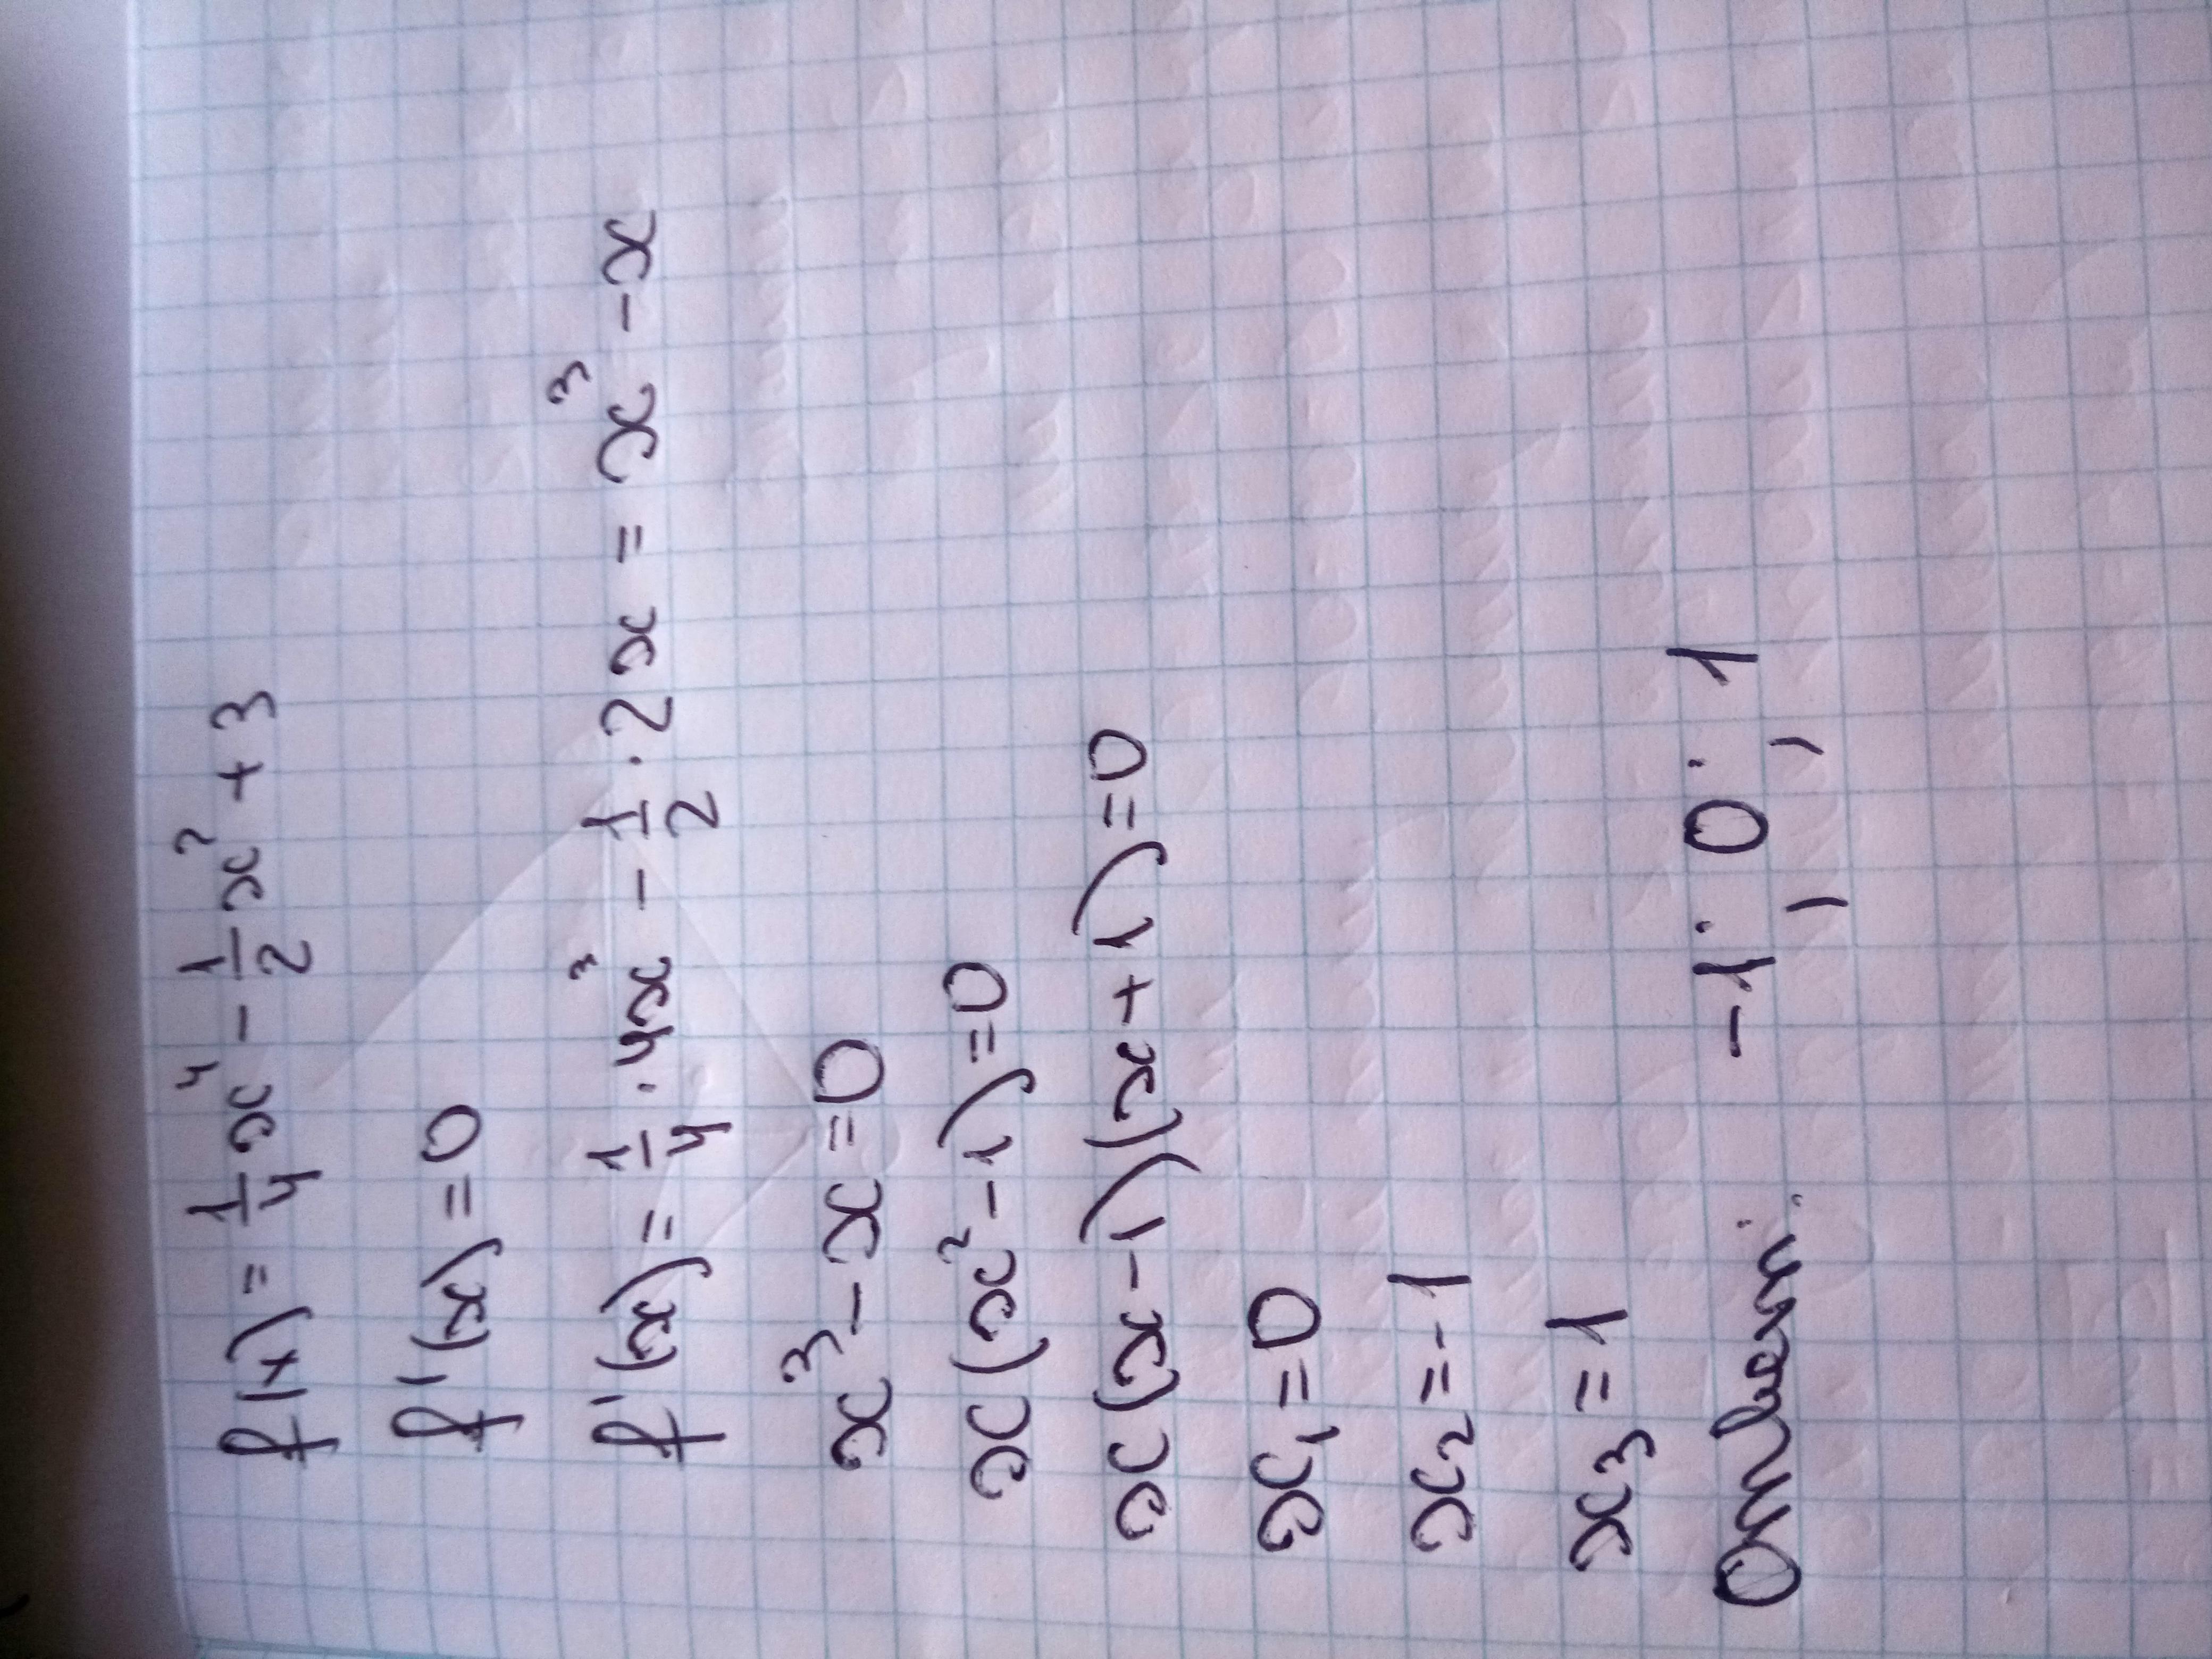 f(x) = 1/4 x⁴ - 1/2 x² + 3
f'(x) = 0
f'(x) = 1/4 · 4x³ - 1/2 · 2x = x³ - x
x³ - x = 0
x(x² - 1) = 0
x(x - 1)(x + 1) = 0
x₁ = 0
x₂ = -1
x₃ = 1
Ответ: -1; 0; 1